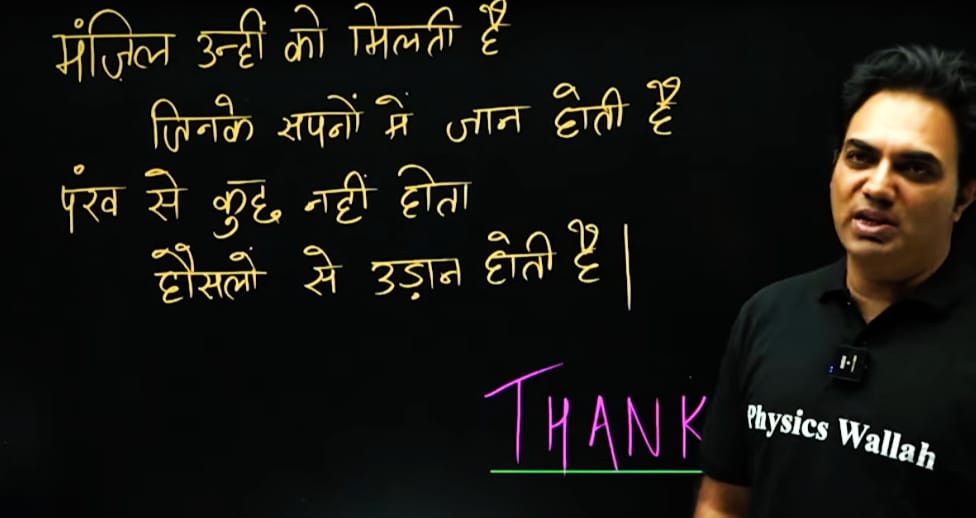 मंज़िल उन्हीं को मिलती है
जिनके सपनों में जान होती है
पंख से कुछ नहीं होता
हौसलों से उड़ान होती है|
THANK
Physics Wallah